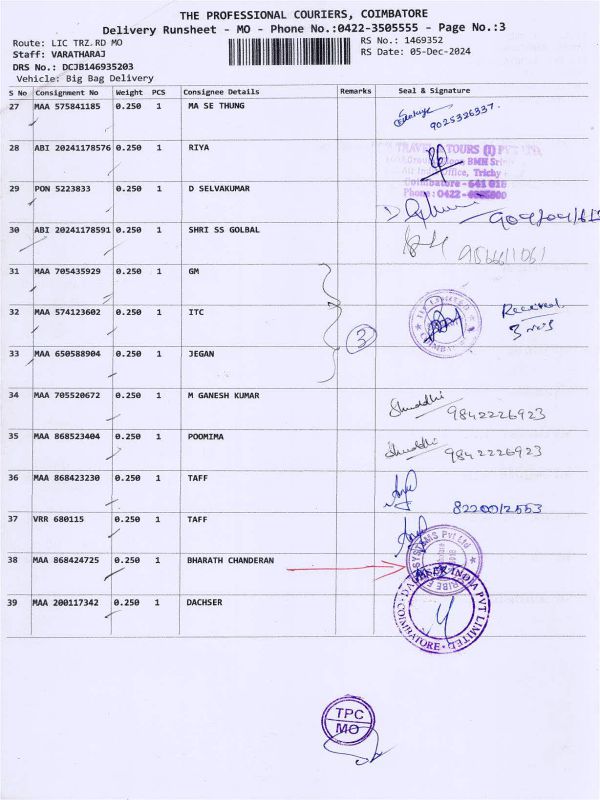 THE PROFESSIONAL COURIERS, COIMBATORE
Delivery Runsheet - MO - Phone No.:0422-3505555 - Page No.:3
Route: LIC TRZ.RD MO
RS No.: 1469352
Staff: VARATHARAJ
RS Date: 05-Dec-2024
DRS No.: DCJB146935203
Vehicle: Big Bag Delivery
S No Consignment No Weight PCS Consignee Details Remarks Seal & Signature
27 MAA 575841185 0.250 1 MA SE THUNG
9025326337.
28 ABI 20241178576 0.250 1 RIYA
TOURS (I) PVT LTD
BMH
Office, Trichy
Coimbatore - 641 018
Phone : 0422 -
29 PON 5223833 0.250 1 D SELVAKUMAR
30 ABI 20241178591 0.250 1 SHRI SS GOLBAL
9566611061
31 MAA 705435929 0.250 1 GM
32 MAA 574123602 0.250 1 ITC
3
Received
3 nos
33 MAA 650588904 0.250 1 JEGAN
34 MAA 705520672 0.250 1 M GANESH KUMAR
Shuddhi
9842226923
35 MAA 868523404 0.250 1 POOMIMA
Shuddhi
9842226923
36 MAA 868423230 0.250 1 TAFF
8220012553
37 VRR 680115 0.250 1 TAFF
38 MAA 868424725 0.250 1 BHARATH CHANDERAN
SYSTEMS Pvt Ltd
39 MAA 200117342 0.250 1 DACHSER
DACHSER INDIA PVT LIMITED
COIMBATORE
TPC
MO